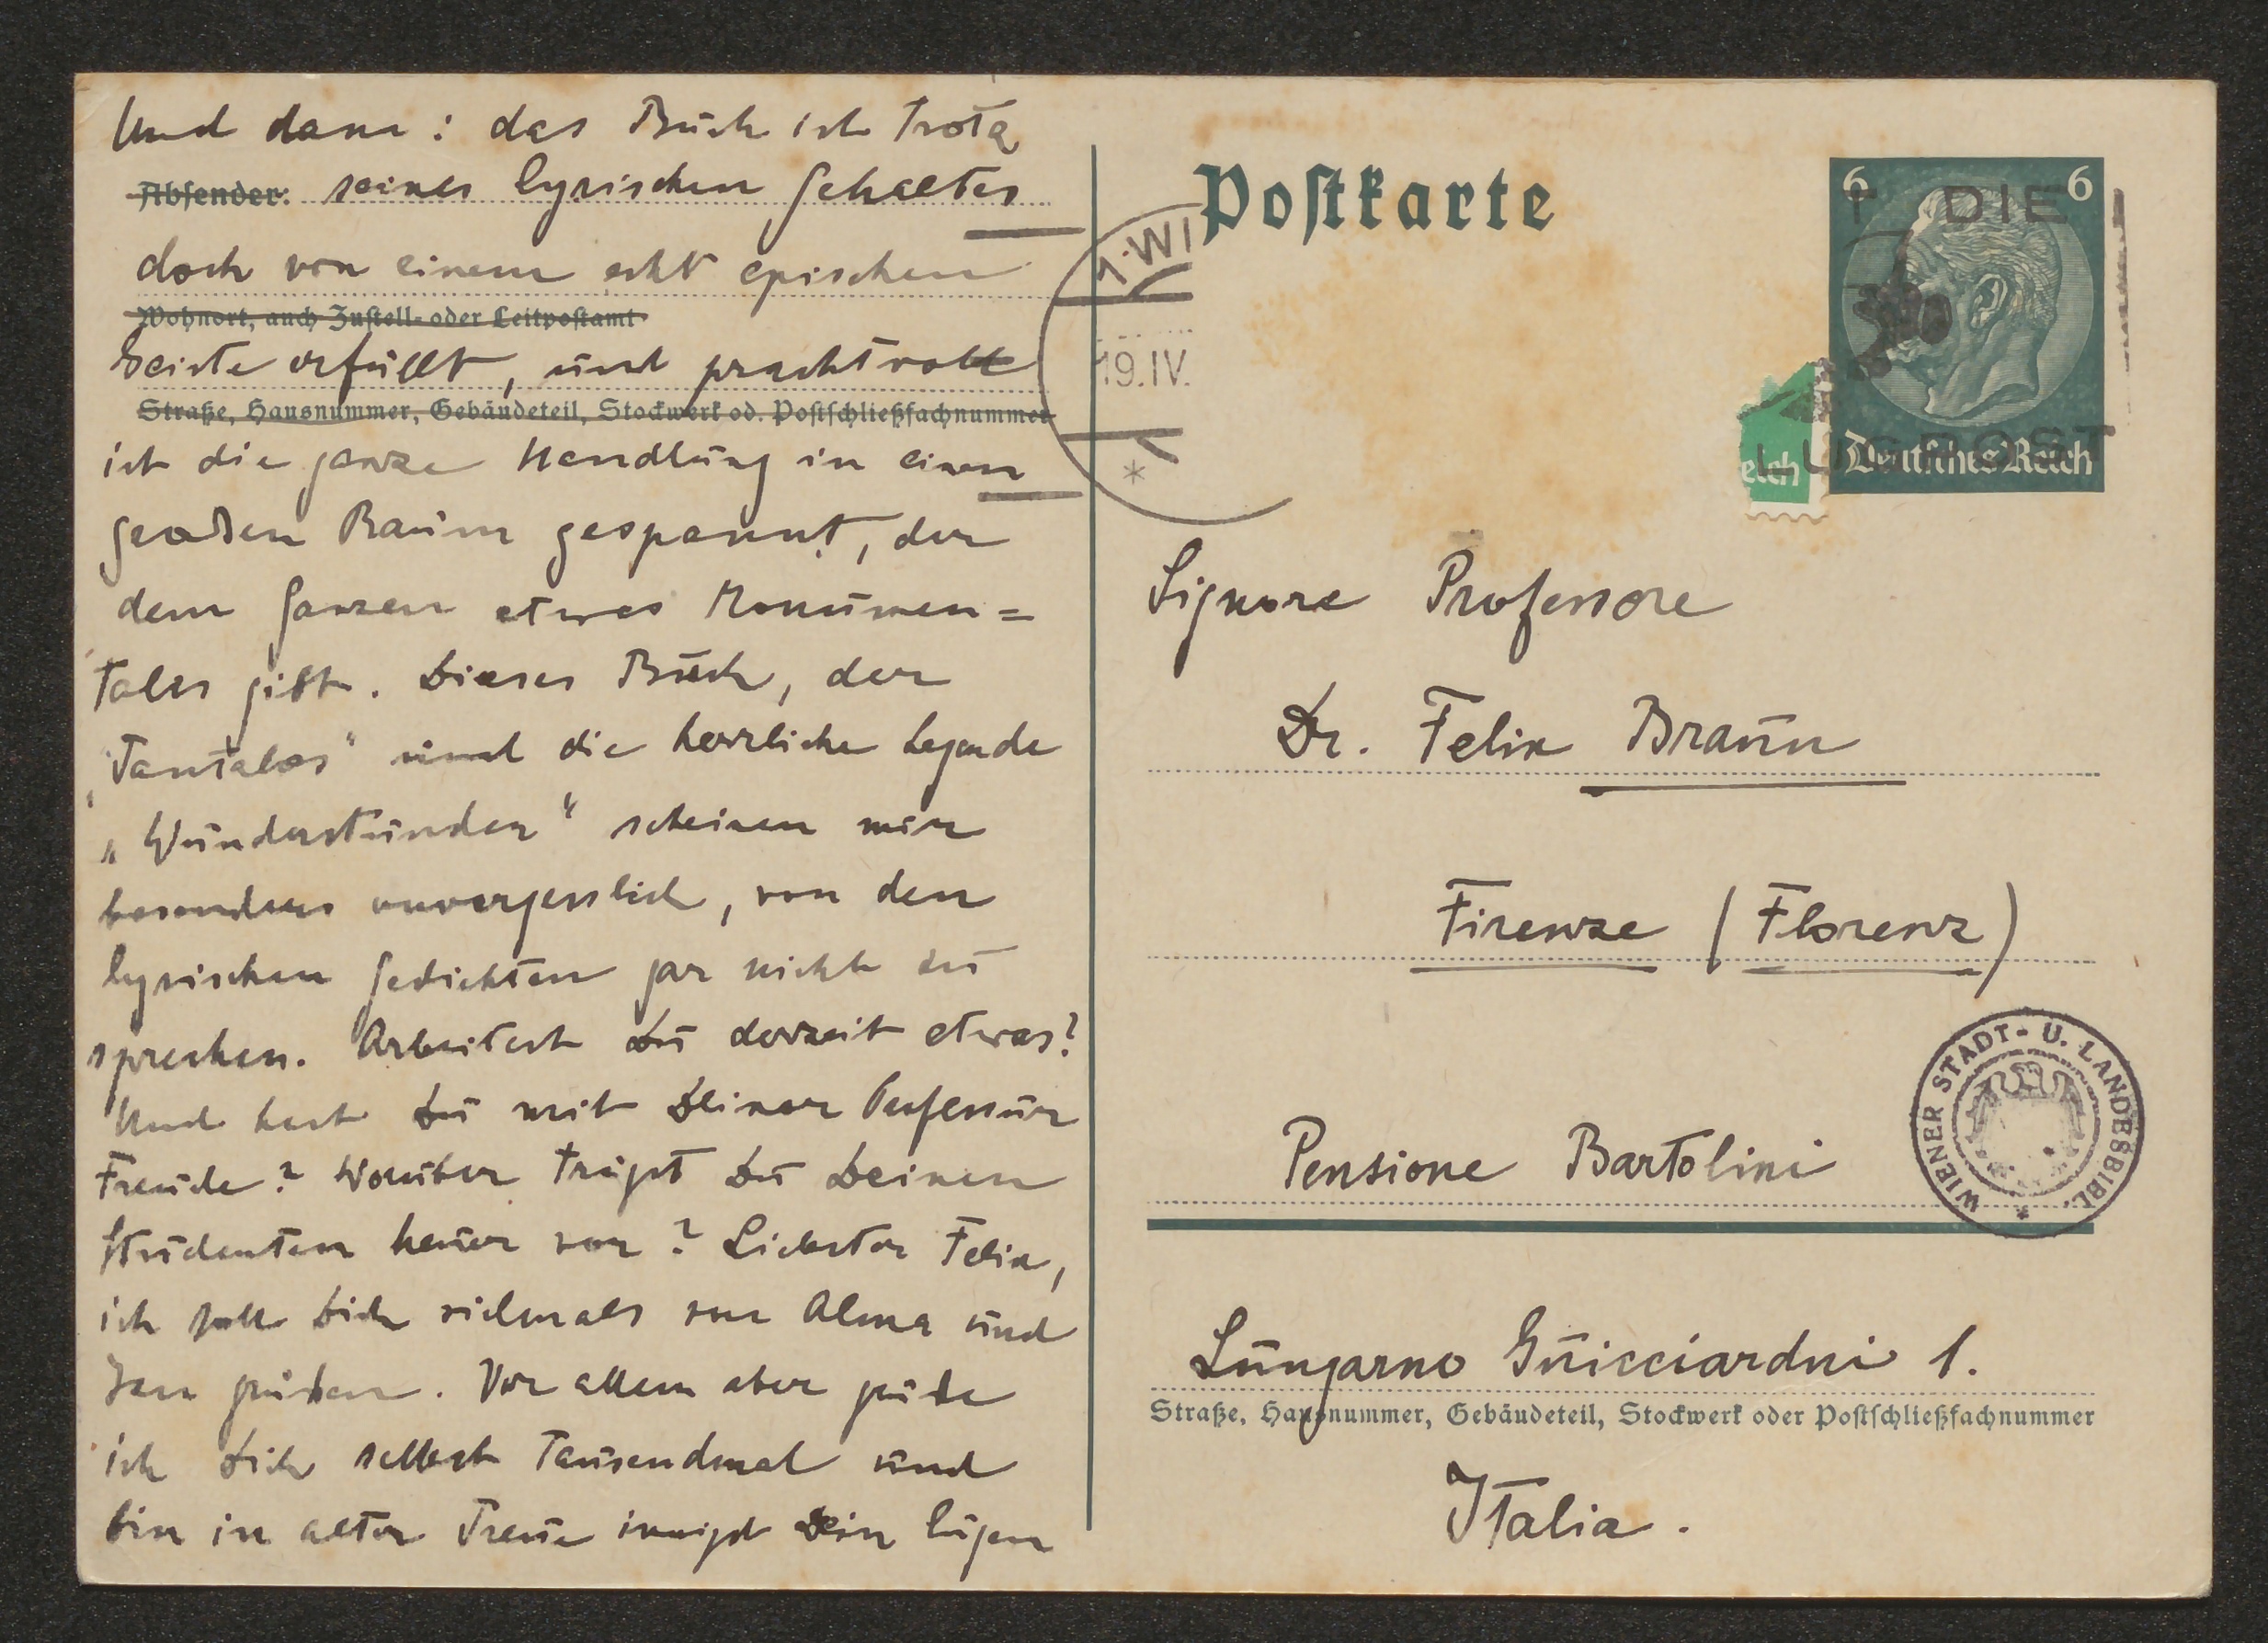 Und dann: das Buch ist trotz
Absender: seines lyrischen Gehaltes
doch von einem echt epischen
Wohnort, auch Zustell- oder Leitpostamt
Geiste erfüllt, und prachtvoll
Straße, Hausnummer, Gebäudeteil, Stockwerk od. Postschließfachnummer
ist die ganze Handlung in einen
großen Raum gespannt, der
dem Ganzen etwas Monumen=
tales gibt. Dieses Buch, der
„Tantalos" und die herrliche Legende
„Wunderstunden" scheinen mir
besonders unvergesslich, von den
lyrischen Gedichten gar nicht zu
sprechen. Arbeitest Du derzeit etwas?
Und hast Du mit Deiner Professur
Freude? Worüber trägst Du Deinen
Studenten heuer vor? Liebster Felix,
ich soll Dich vielmals von Alma und
grüßen. Vor allem aber grüße
ich Dich selbst tausendmal und
bin in alter Treue innigst Dein Eugen
Postkarte
6 6
Deutsches Reich
T DIE
LUGPOST
eich
1. WI
19. IV.
*
Signore Professore
Dr. Felix Braun
Firenze (Florenz)
Pensione Bartolini
WIENER STADT- U. LANDESBIBL. *
Lungarno Guicciardni 1.
Straße, Hausnummer, Gebäudeteil, Stockwerk oder Postschließfachnummer
Italia.